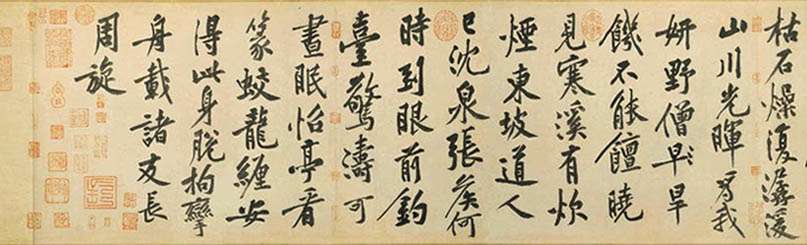 枯石燥復潺湲
山川光暉為我
妍野僧早旱
饑不能饘曉
見寒溪有炊
煙東坡道人
已沈泉張侯何
時到眼前釣
臺驚濤可
晝眠怡亭看
篆蛟龍纏安
得此身脫拘攣
舟載諸友長
周旋